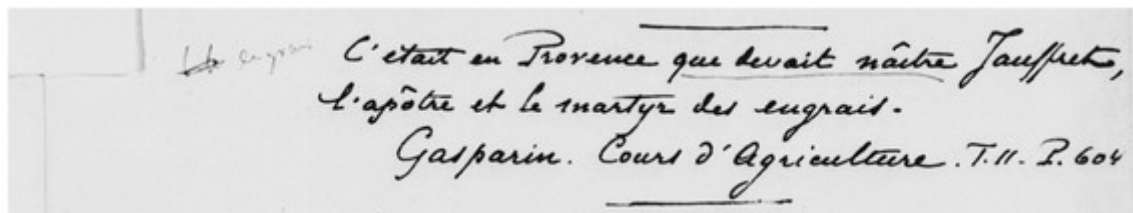 engrais
C'était en Provence que devait nâitre Jauffret,
l'apôtre et le martyr des engrais.
Gasparin. Cours d'Agriculture. T. II. P. 604